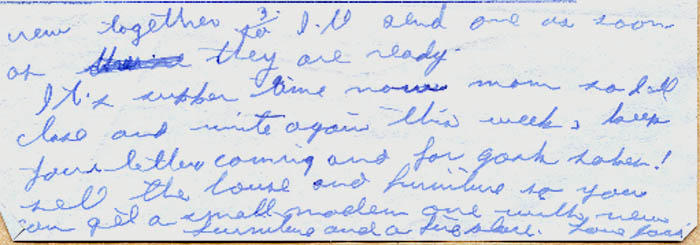 new together so I'll send one as soon
as they are ready.
It's supper time now mom so I'll
close and write again this week, keep
your letters coming and for gosh sakes!
sell the house and furniture so you
can get a small modern one with new
furniture and a fireplace. Love